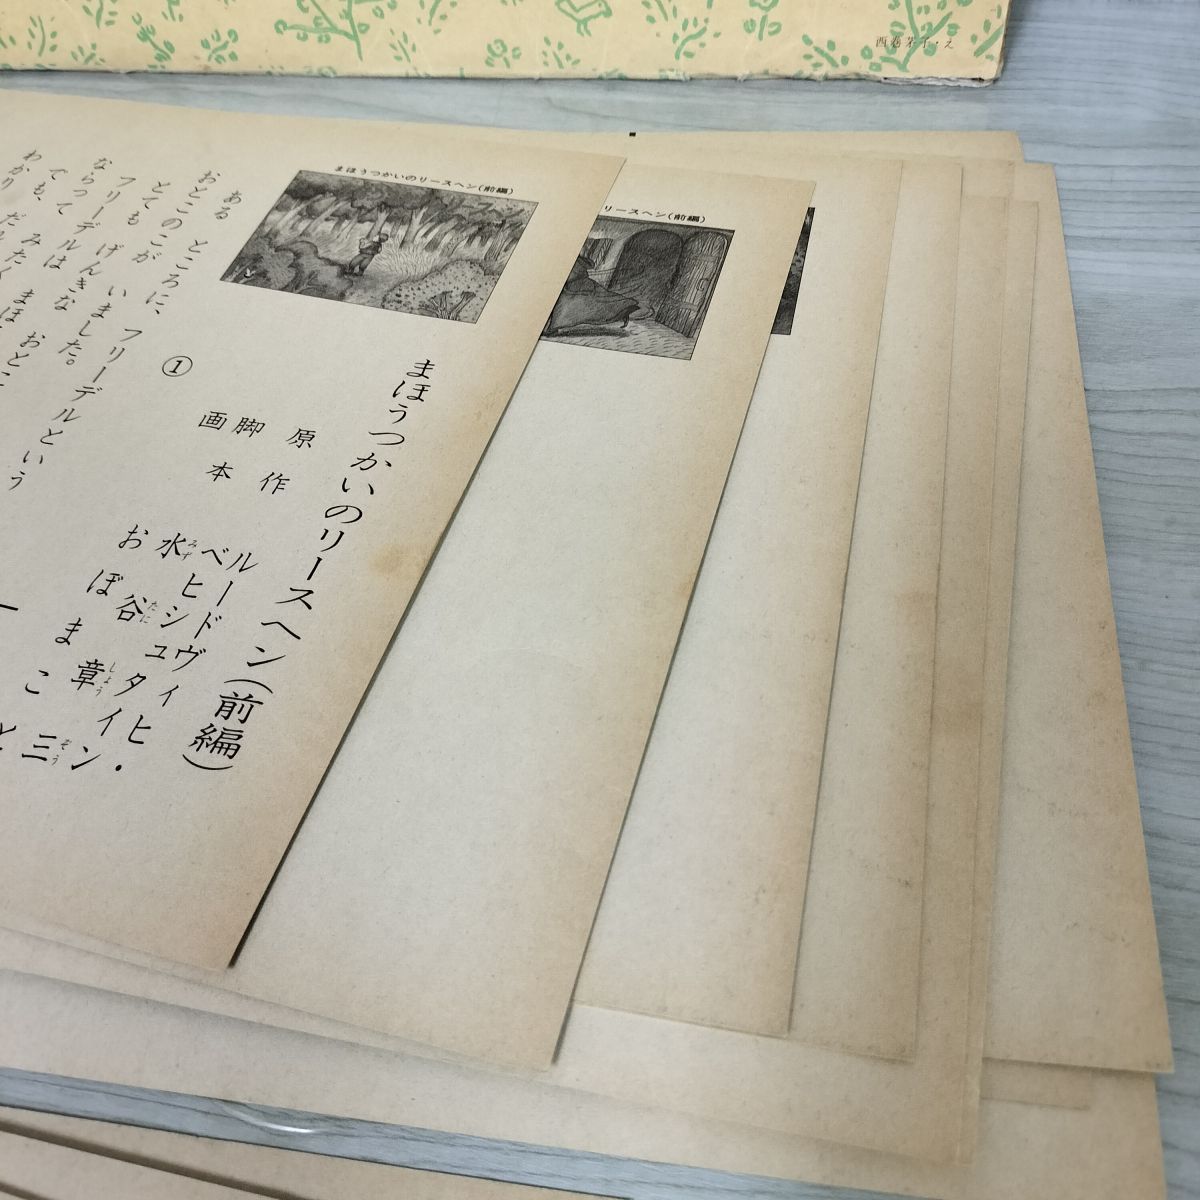 西巻茅子・え
まほうつかいのリースヘン(前編)
リースヘン(前編)
まほうつかいのリースヘン(前編)
原作 ルードヴィヒ・
ベヒシュタイン
脚本 水谷章三
みず たに しょう ぞう
画 おぼまこと
①
ある ところに、フリーデルという
おとこのこが いました。
とても げんきな おとこ
フリーデルは
ならって
でも、みたく まほ
わかり